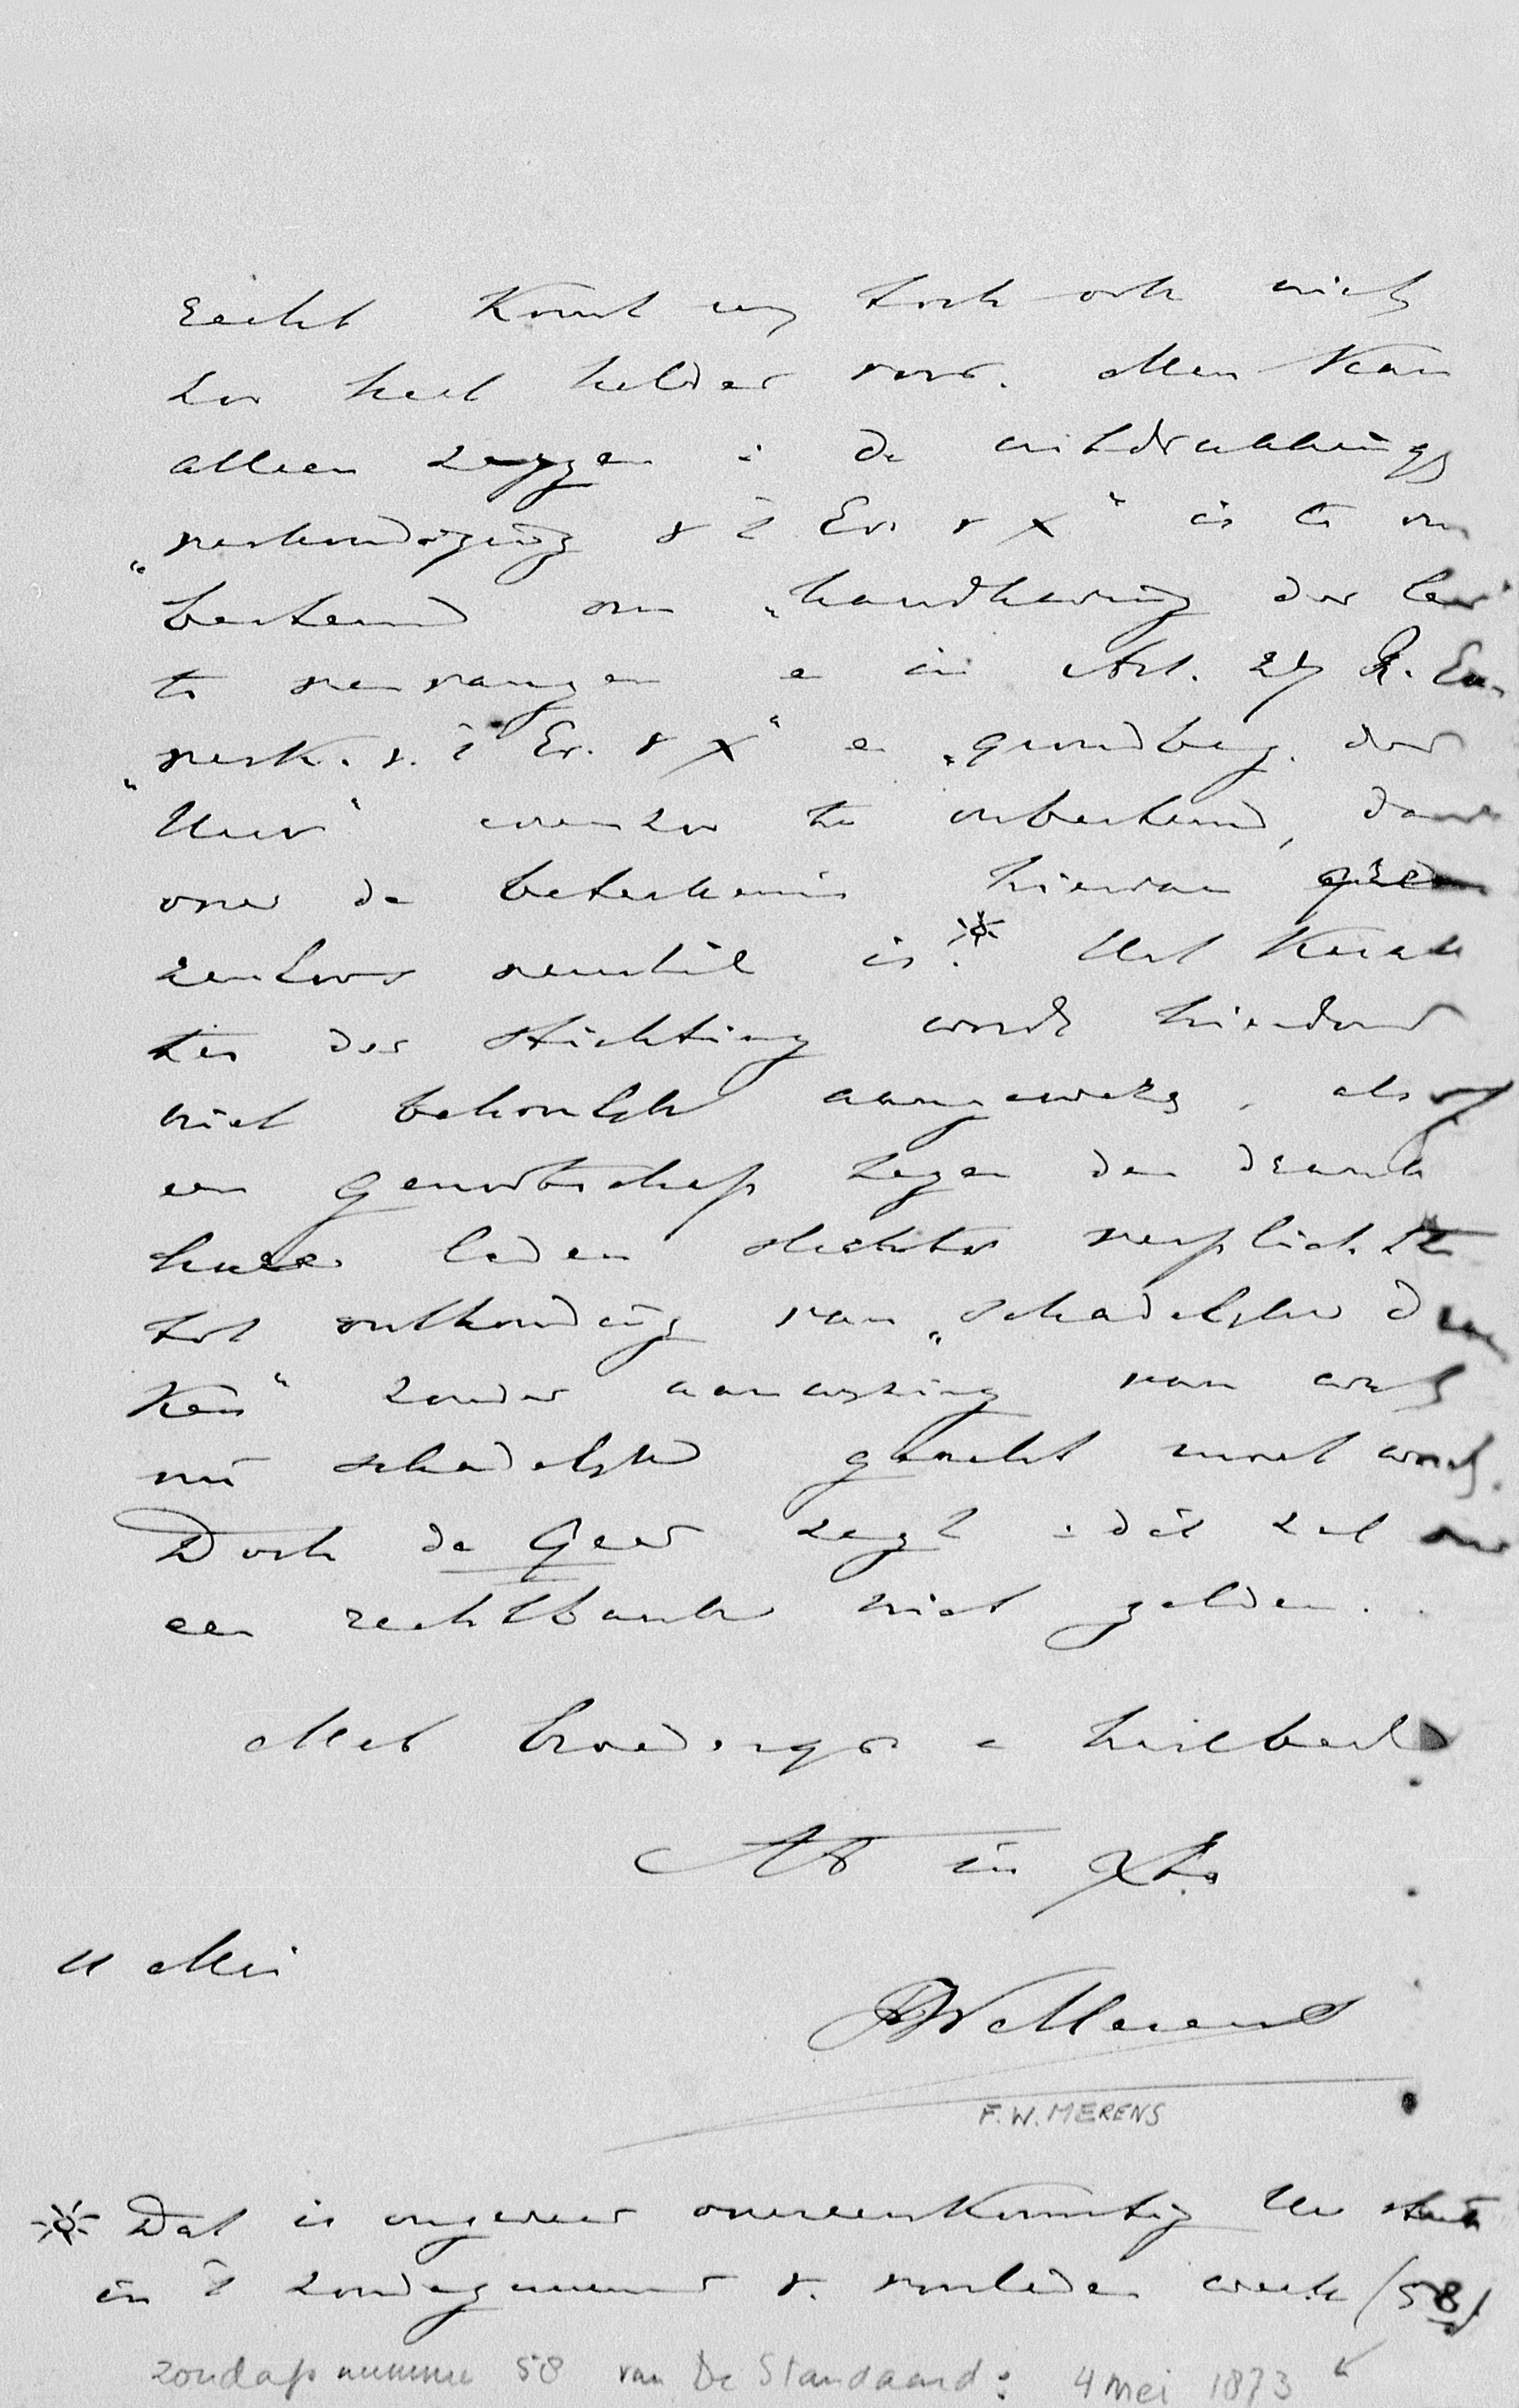 Eecht komt my toch ook niet
zoo heel helder voor. Men kan
alleen zeggen : de uitdrukkings
„verkondiging v 't Ev. v X" is te on
bestemd om „handhaving der leer"
te vervangen en in Art. 27 R. En
„verk. v. 't Ev. v X" en „grondbeg. der
Herv" evenzoo te onbestemd, daar
over de beteekenis hiervan
zooveel verschil is. Het karak
ter der stichting wordt hierdoor
niet behoorlijk aangewezen, alsof
een genootschap tegen den drank
hare leden slechts verplichtte
tot onthouding van „schadelijke dran
ken" zonder aanwijzing van wat
nu schadelijk geacht moet word.
Doch de Geer zegt : dát zal voor
een rechtbank niet gelden.
Met broedergr. en heilbede
tt in Xto
11 Mei
FWMerens
F.W. MERENS
Dat is ongeveer overeenkomstig Uw stuk
in 't zondagnummer v. verleden week (58)
zondagsnummer 58 van De Standaard: 4 mei 1873